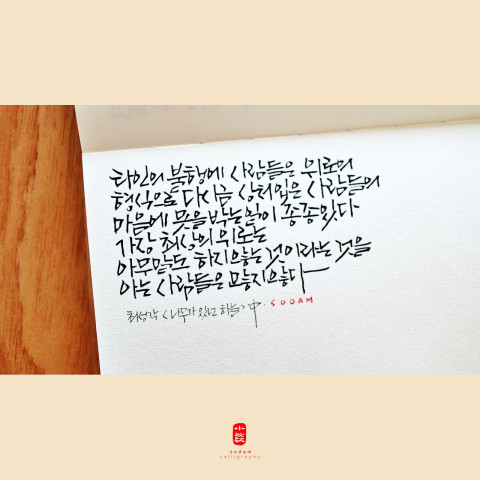 타인의 불행에 사람들은 위로의
형식으로 다시금 상처입은 사람들의
마음에 못을 박는일이 종종있다
가장 최상의 위로는
아무말도 하지않는 것이라는 것을
아는 사람들은 많지않다
최성각 <나무가 하늘> 中. SODAM
sodam
calligraphy